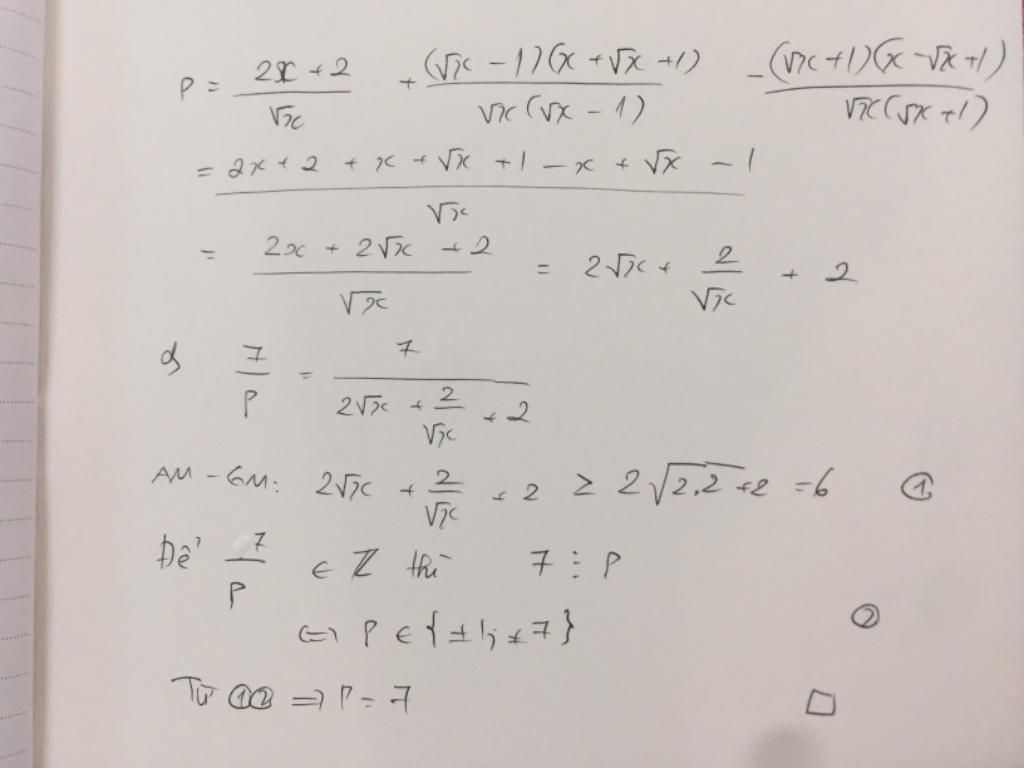 P = \frac{2x + 2}{\sqrt{x}} + \frac{(\sqrt{x} - 1)(x + \sqrt{x} + 1)}{\sqrt{x}(\sqrt{x} - 1)} - \frac{(\sqrt{x} + 1)(x - \sqrt{x} + 1)}{\sqrt{x}(\sqrt{x} + 1)}
= \frac{2x + 2 + x + \sqrt{x} + 1 - x + \sqrt{x} - 1}{\sqrt{x}}
= \frac{2x + 2\sqrt{x} + 2}{\sqrt{x}} = 2\sqrt{x} + \frac{2}{\sqrt{x}} + 2
\frac{7}{P} = \frac{7}{2\sqrt{x} + \frac{2}{\sqrt{x}} + 2}
AM - GM: 2\sqrt{x} + \frac{2}{\sqrt{x}} + 2 ≥ 2\sqrt{2.2} + 2 = 6 ①
Để \frac{7}{P} ∈ ℤ thì 7 ⋮ P
⇔ P ∈ {±1; ±7} ②
Từ ①② ⇒ P = 7 □